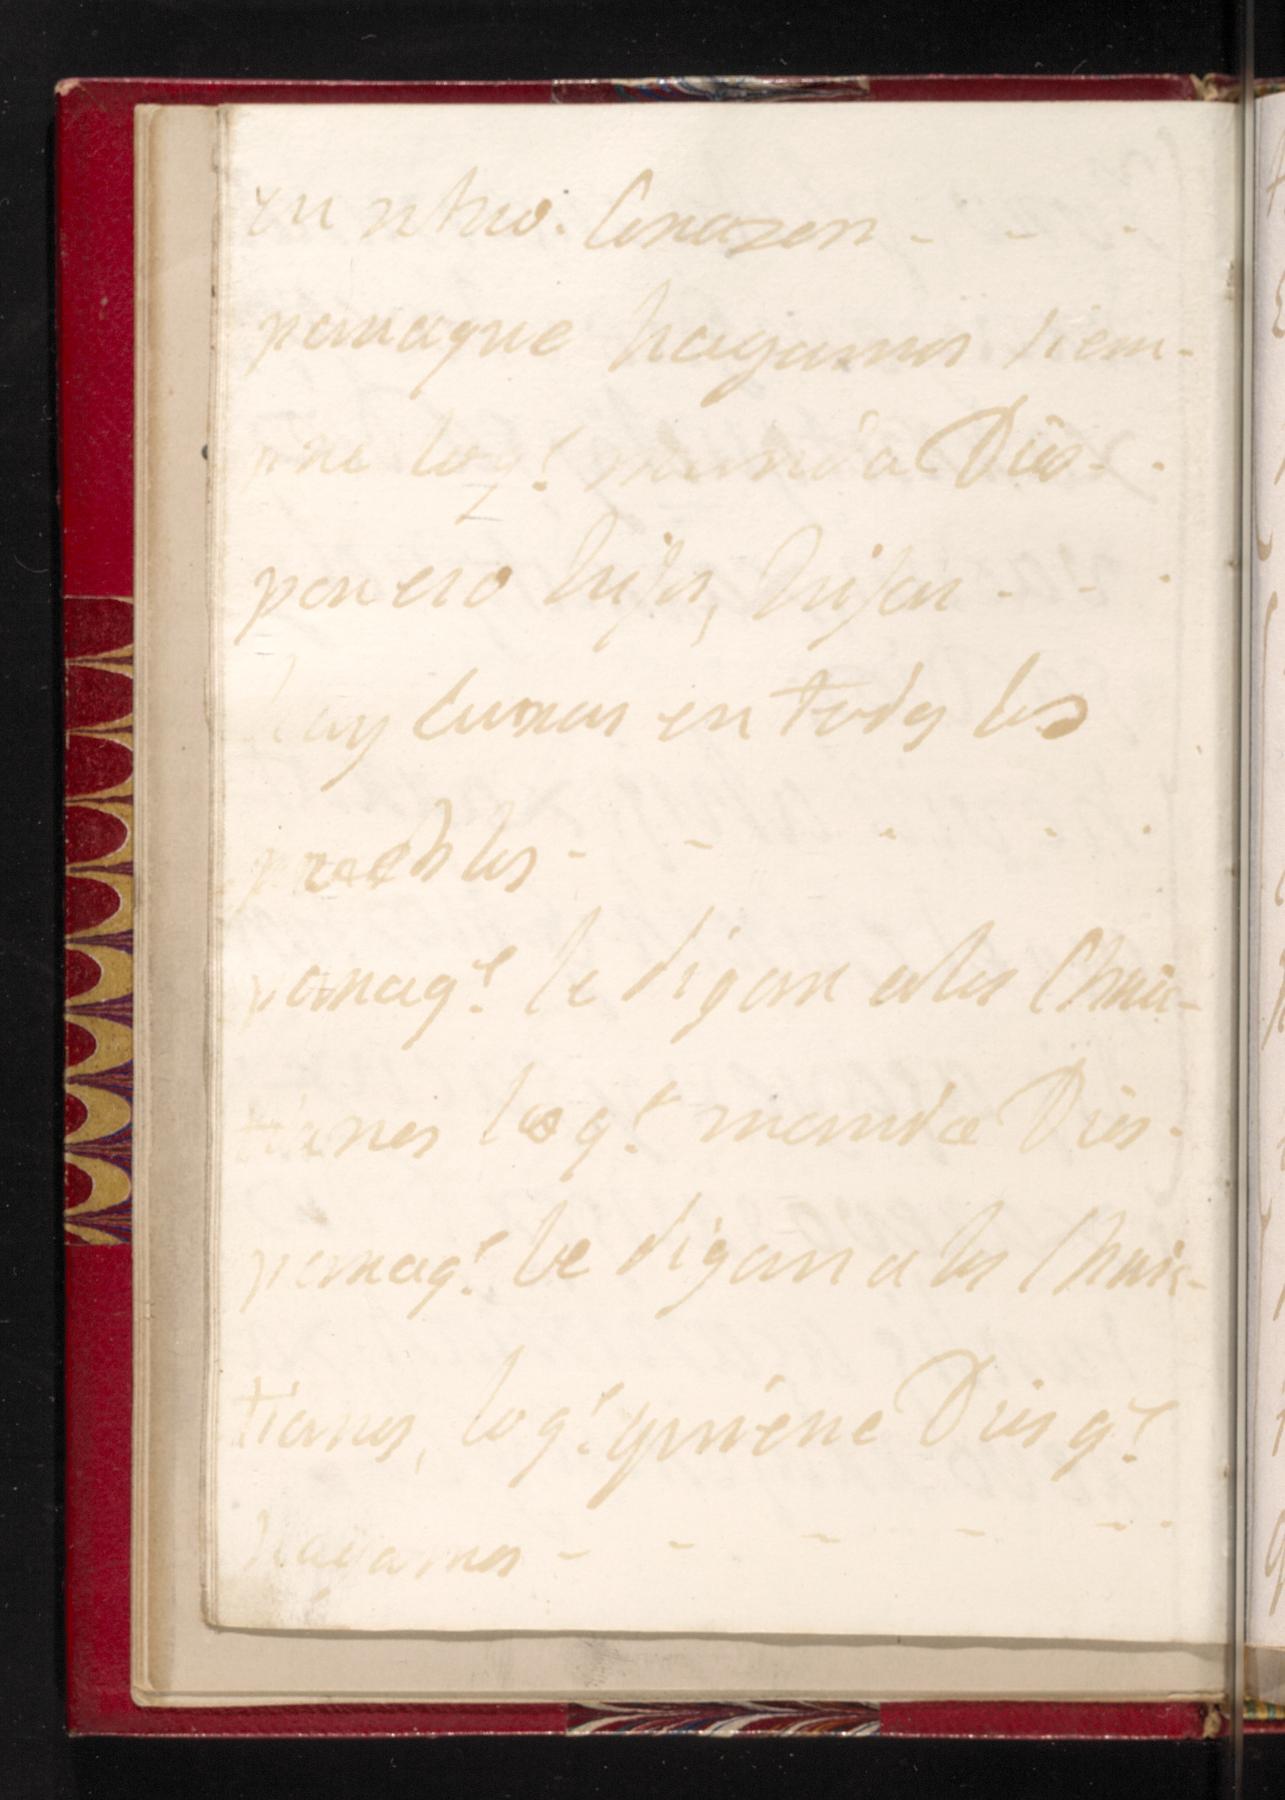 en ntrō. Corazon - - -
paraque hagamos siem-
pre loq.e manda Dios - .
por eso hijos, hijas - - -
hay curas en todos los
pueblos - - - - -
paraq.e le digan alos Chris-
tianos loq.e manda Dios.
paraq.e le digan a los Chris-
tianos, loq.e quiere Dios q.e
hagamos - - - - - -